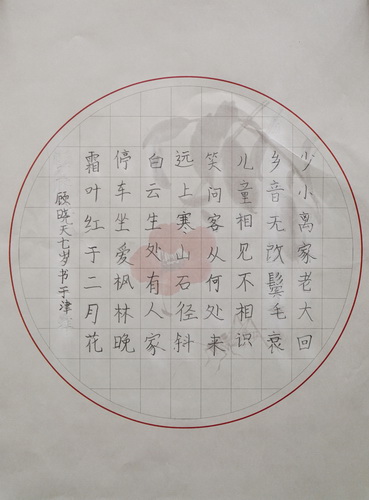 少小离家老大回
乡音无改鬓毛衰
儿童相见不相识
笑问客从何处来
远上寒山石径斜
白云生处有人家
停车坐爱枫林晚
霜叶红于二月花
顾晔天七岁书于津